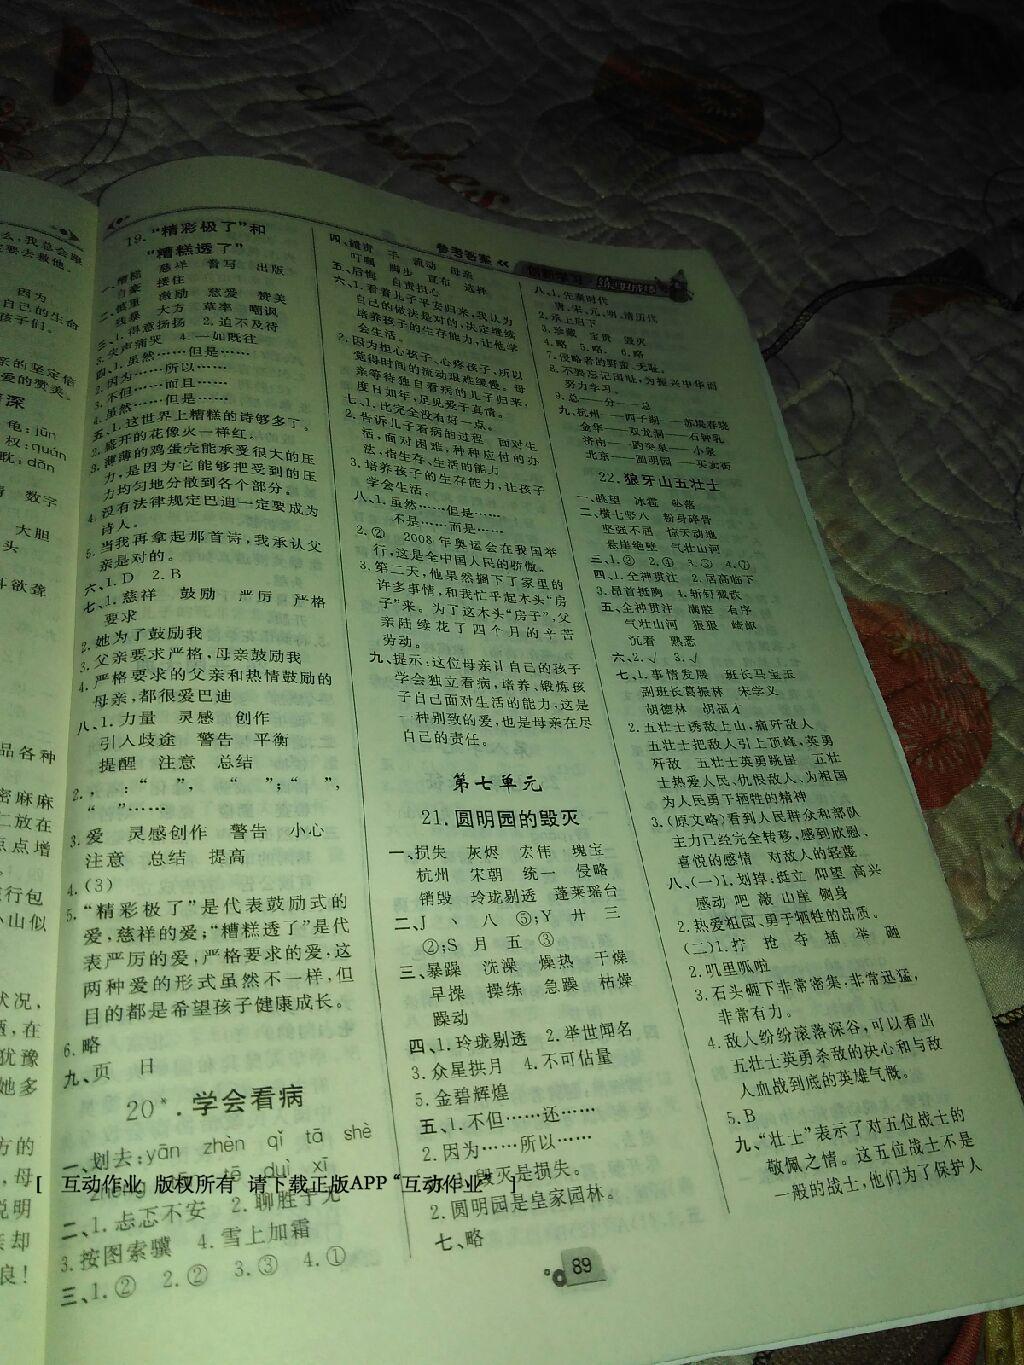 么,我总会靠
要去救他。
因为
自己的生命
孩子们。
亲的坚定信
爱的赞美。
深
龟:jūn
权:quán
耽:dān
数字
大胆
头
欲聋
品各种
密麻麻
仁放在
点点增
行包
小山似
状况,
在
犹豫
她多
方的
母
说明
亲却
良!
19.“精彩极了”和
“糟糕透了”
一、糟糕 慈祥 誊写 出版
自豪 搂住
二、慎重 激励 慈爱 赞美
残暴 大方 草率 嘲讽
三、1.得意扬扬 2.迫不及待
3.失声痛哭 4.一如既往
四、1.虽然……但是……
2.因为……所以……
3.不但……而且……
4.虽然……但是……
五、1.这世界上糟糕的诗够多了。
2.盛开的花像火一样红。
3.薄薄的鸡蛋壳能承受很大的压
力,是因为它能够把受到的压
力均匀地分散到各个部分。
4.没有法律规定巴迪一定要成为
诗人。
5.当我再拿起那首诗,我承认父
亲是对的。
六、1.D 2.B
七、1.慈祥 鼓励 严厉 严格
要求
2.她为了鼓励我
3.父亲要求严格,母亲鼓励我
4.严格要求的父亲和热情鼓励的
母亲,都很爱巴迪
八、1.力量 灵感 创作
引入歧途 警告 平衡
提醒 注意 总结
2.,:“ ”,“ ”;“ ”,
“ ”……
3.爱 灵感创作 警告 小心
注意 总结 提高
4.(3)
5.“精彩极了”是代表鼓励式的
爱,慈祥的爱;“糟糕透了”是代
表严厉的爱,严格要求的爱。这
两种爱的形式虽然不一样,但
目的都是希望孩子健康成长。
6.略
九、页 日
20*.学会看病
一、划去:yān zhèn qǐ tā shè
二、1.忐忑不安 2.聊胜于无
3.按图索骥 4.雪上加霜
三、1.② 2.② 3.③ 4.①
参考答案
四、
叮嘱 脚步 宣布 选择
五、后悔 自责担心
六、1.看着儿子平安归来,我认为
自己的做法是对的,决定继续
培养孩子的生存能力,让他学
会生活。
2.因为担心孩子、心疼孩子,所以
觉得时间的流动艰难缓慢。母
亲等待独自看病的儿子归来,
度日如年,足见爱子真情。
七、1.比完全没有好一点。
2.告诉儿子看病的过程 面对生
活,面对困难,种种应付的办
法,指生存、生活的能力
3.培养孩子的生存能力,让孩子
学会生活。
八、1.虽然……但是……
不是……而是……
2.② 2008年奥运会在我国举
行,这是全中国人民的骄傲。
3.第二天,他果然搁下了家里的
许多事情,和我忙乎起木头“房
子”来。为了这木头“房子”,父
亲陆续花了四个月的辛苦
劳动。
九、提示:这位母亲让自己的孩子
学会独立看病,培养、锻炼孩
子自己面对生活的能力,这是
一种别致的爱,也是母亲在尽
自己的责任。
第七单元
21.圆明园的毁灭
一、损失 灰烬 宏伟 瑰宝
杭州 宋朝 统一 侵略
销毁 玲珑剔透 蓬莱瑶台
二、J 丶 八 ⑤;Y 廾 三
②;S 月 五 ③
三、暴躁 洗澡 燥热 干燥
早操 操练 急躁 枯燥
躁动
四、1.玲珑剔透 2.举世闻名
3.众星拱月 4.不可估量
5.金碧辉煌
五、1.不但……还……
2.因为……所以……
1.毁灭是损失。
2.圆明园是皇家园林。
七、略
八、1.先秦时代
唐、宋、元、明、清历代
2.承上启下
3.珍藏 宝贵 毁灭
4.略 5.略 6.略
7.侵略者的野蛮、无耻。
8.不要忘记国耻,为振兴中华而
努力学习。
9.总——分——总
九、杭州——西子湖——苏堤春晓
金华——双龙洞——石钟乳
济南——趵突泉——小泉
北京——圆明园——买卖街
22.狼牙山五壮士
一、眺望 冰雹 坠落
二、横七竖八 粉身碎骨
坚强不屈 惊天动地
悬崖绝壁 气壮山河
三、1.② 2.④ 3.③ 4.①
四、1.全神贯注 2.居高临下
3.昂首挺胸 4.斩钉截铁
五、全神贯注 满腔
气壮山河 狠狠 崎岖
沉着 熟悉
六、2.√ 3.√
七、1.事情发展 班长马宝玉
副班长葛振林 宋学义
胡德林 胡福才
2.五壮士诱敌上山,痛歼敌人
五壮士把敌人引上顶峰,英勇
歼敌 五壮士英勇跳崖 五壮
士热爱人民、仇恨敌人、为祖国
为人民勇于牺牲的精神
3.(原文略)看到人民群众和部队
主力已经完全转移,感到欣慰、
喜悦的感情 对敌人的轻蔑
八、(一)1.划算 挺立 仰望 高兴
感动 吧 敲 山崖 侧身
2.热爱祖国、勇于牺牲的品质。
(二)1.拧 抢 夺 插 举 砸
2.叽里呱啦
3.石头砸下非常密集,非常迅猛,
非常有力。
4.敌人纷纷滚落深谷,可以看出
五壮士英勇杀敌的决心和与敌
人血战到底的英雄气慨。
5.B
九、“壮士”表示了对五位战士的
敬佩之情。这五位战士不是
一般的战士,他们为了保护人
[ 互动作业 版权所有 请下载正版APP“互动作业” ]
89